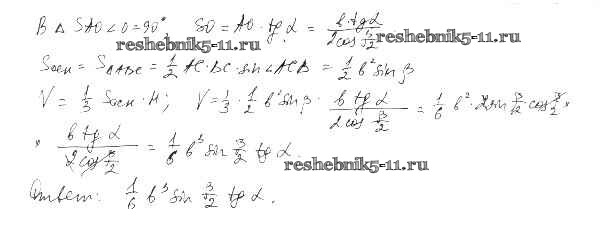 В △ SAO ∠O = 90°, SO = AO · tg α = b tg α / 2cos β/2
reshebnik5-11.ru
reshebnik5-11.ru
Sосн = S△ABC = 1/2 AC · BC · sin ∠ACB = 1/2 b² sin β
V = 1/3 Sосн · H; V = 1/3 · 1/2 b² sin β · b tg α / 2cos β/2 = 1/6 b² · 2sin β/2 cos β/2 ×
× b tg α / 2cos β/2 = 1/6 b³ sin β/2 tg α.
reshebnik5-11.ru
Ответ: 1/6 b³ sin β/2 tg α.